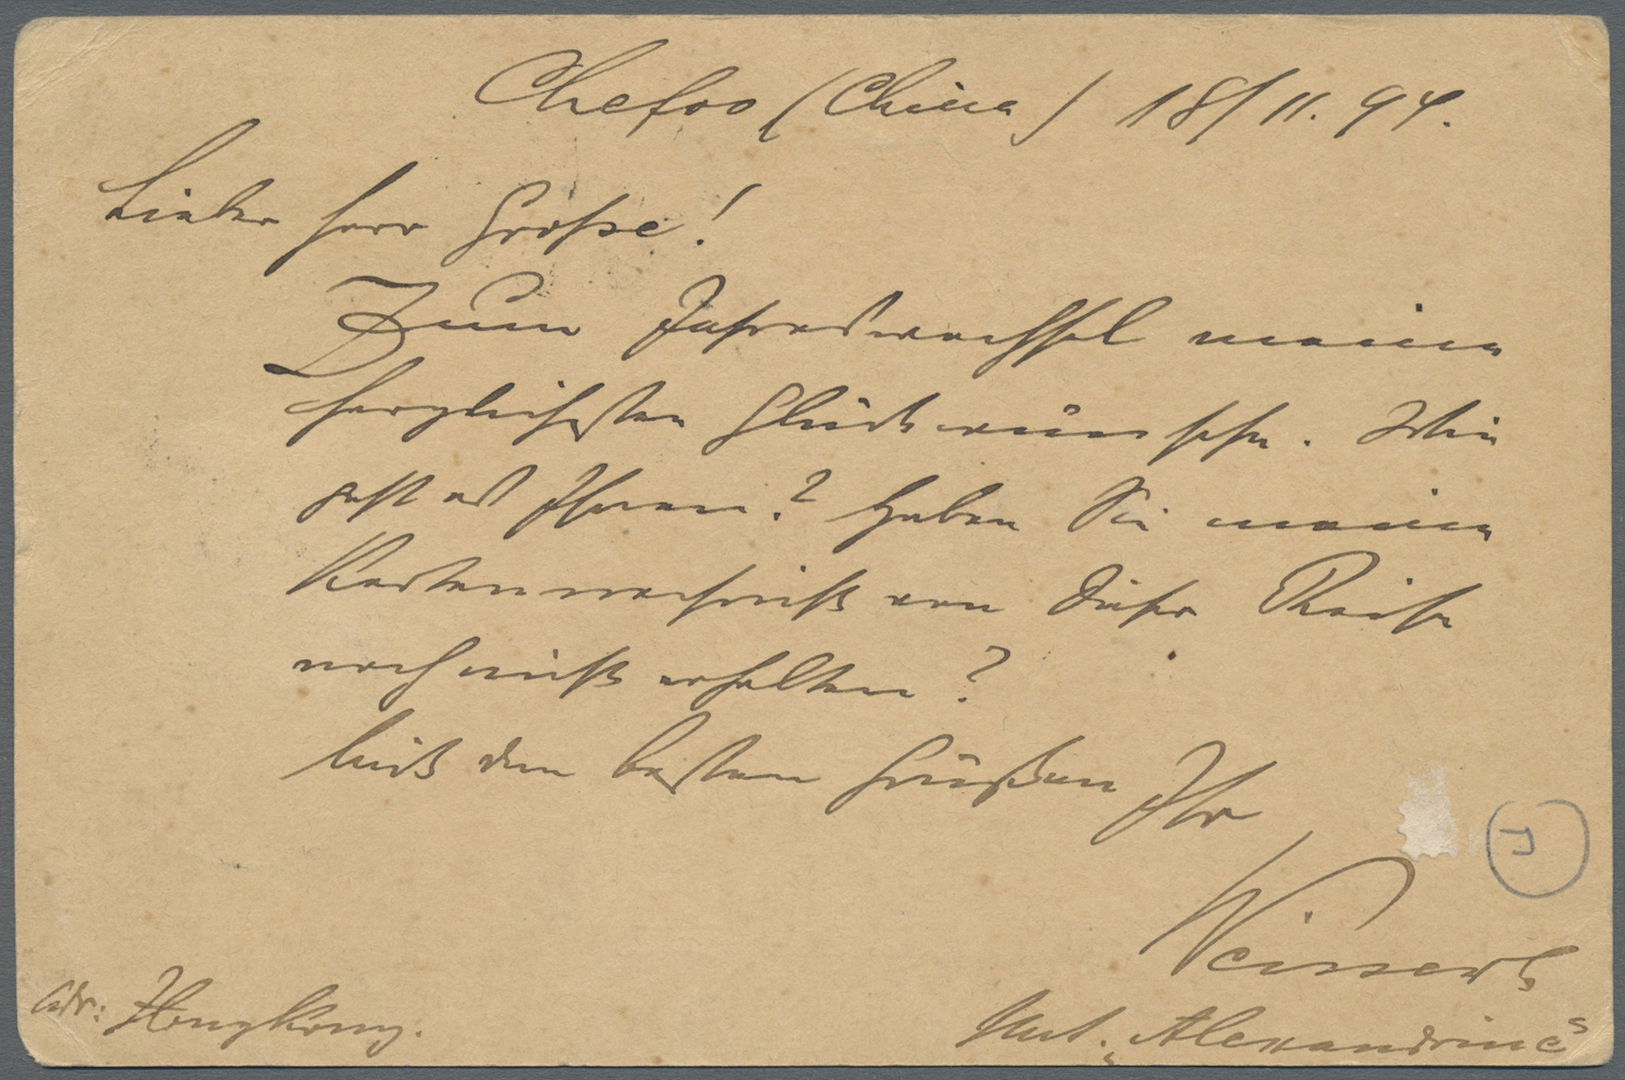 Chefoo (China) 18/11. 94.
Lieber Herr Große!
Zum Jahreswechsel meine
herzlichsten Glückwünsche. Wie
geht es Ihnen? Haben Sie meine
Kartennachricht von dieser Reise
noch nicht erhalten?
Mit den besten Grüßen Ihr
Adr: Hongkong.
"Alexandrine"